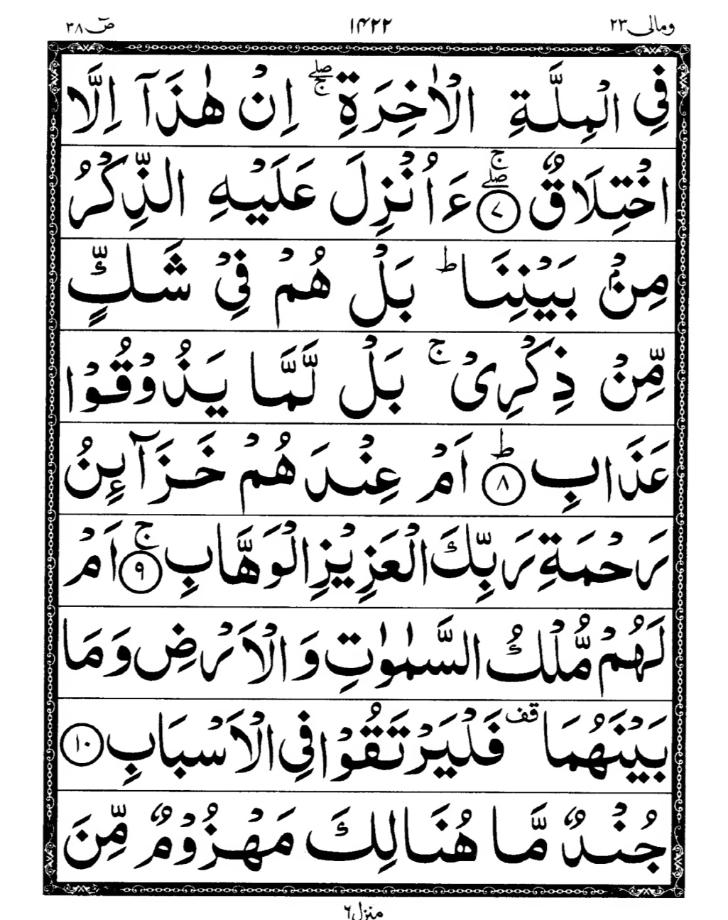 ومالى ٢٣ ١٤٢٢ صٓ ٣٨
فِى الْمِلَّةِ الْاٰخِرَةِ ۖۚ اِنْ هٰذَاۤ اِلَّا
اخْتِلَاقٌ ۖۚ ﴿٧﴾ ءَاُنْزِلَ عَلَيْهِ الذِّكْرُ
مِنْۢ بَيْنِنَا ؕ بَلْ هُمْ فِىْ شَكٍّ
مِّنْ ذِكْرِىْ ۚ بَلْ لَّمَّا يَذُوْقُوْا
عَذَابِ ؕ ﴿٨﴾ اَمْ عِنْدَهُمْ خَزَآئِنُ
رَحْمَةِ رَبِّكَ الْعَزِيْزِ الْوَهَّابِ ۚ ﴿٩﴾ اَمْ
لَهُمْ مُّلْكُ السَّمٰوٰتِ وَالْاَرْضِ وَمَا
بَيْنَهُمَا قف فَلْيَرْتَقُوْا فِى الْاَسْبَابِ ﴿١٠﴾
جُنْدٌ مَّا هُنَالِكَ مَهْزُوْمٌ مِّنَ
منزل ٦